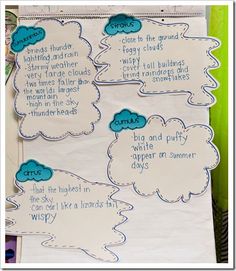 cumulonimbus
-brings thunder
lightning, and rain
-stormy weather
-very large clouds
two times taller than
the worlds largest
mountain
-high in the sky
-thunderheads
stratus
-close to the ground
-foggy clouds
-wispy
-cover tall buildings
-bring raindrops and
snowflakes
cumulus
-big and puffy
-white
-appear on summer
days
cirrus
-that the highest in
the sky
-can curl like a lizards tail
-wispy